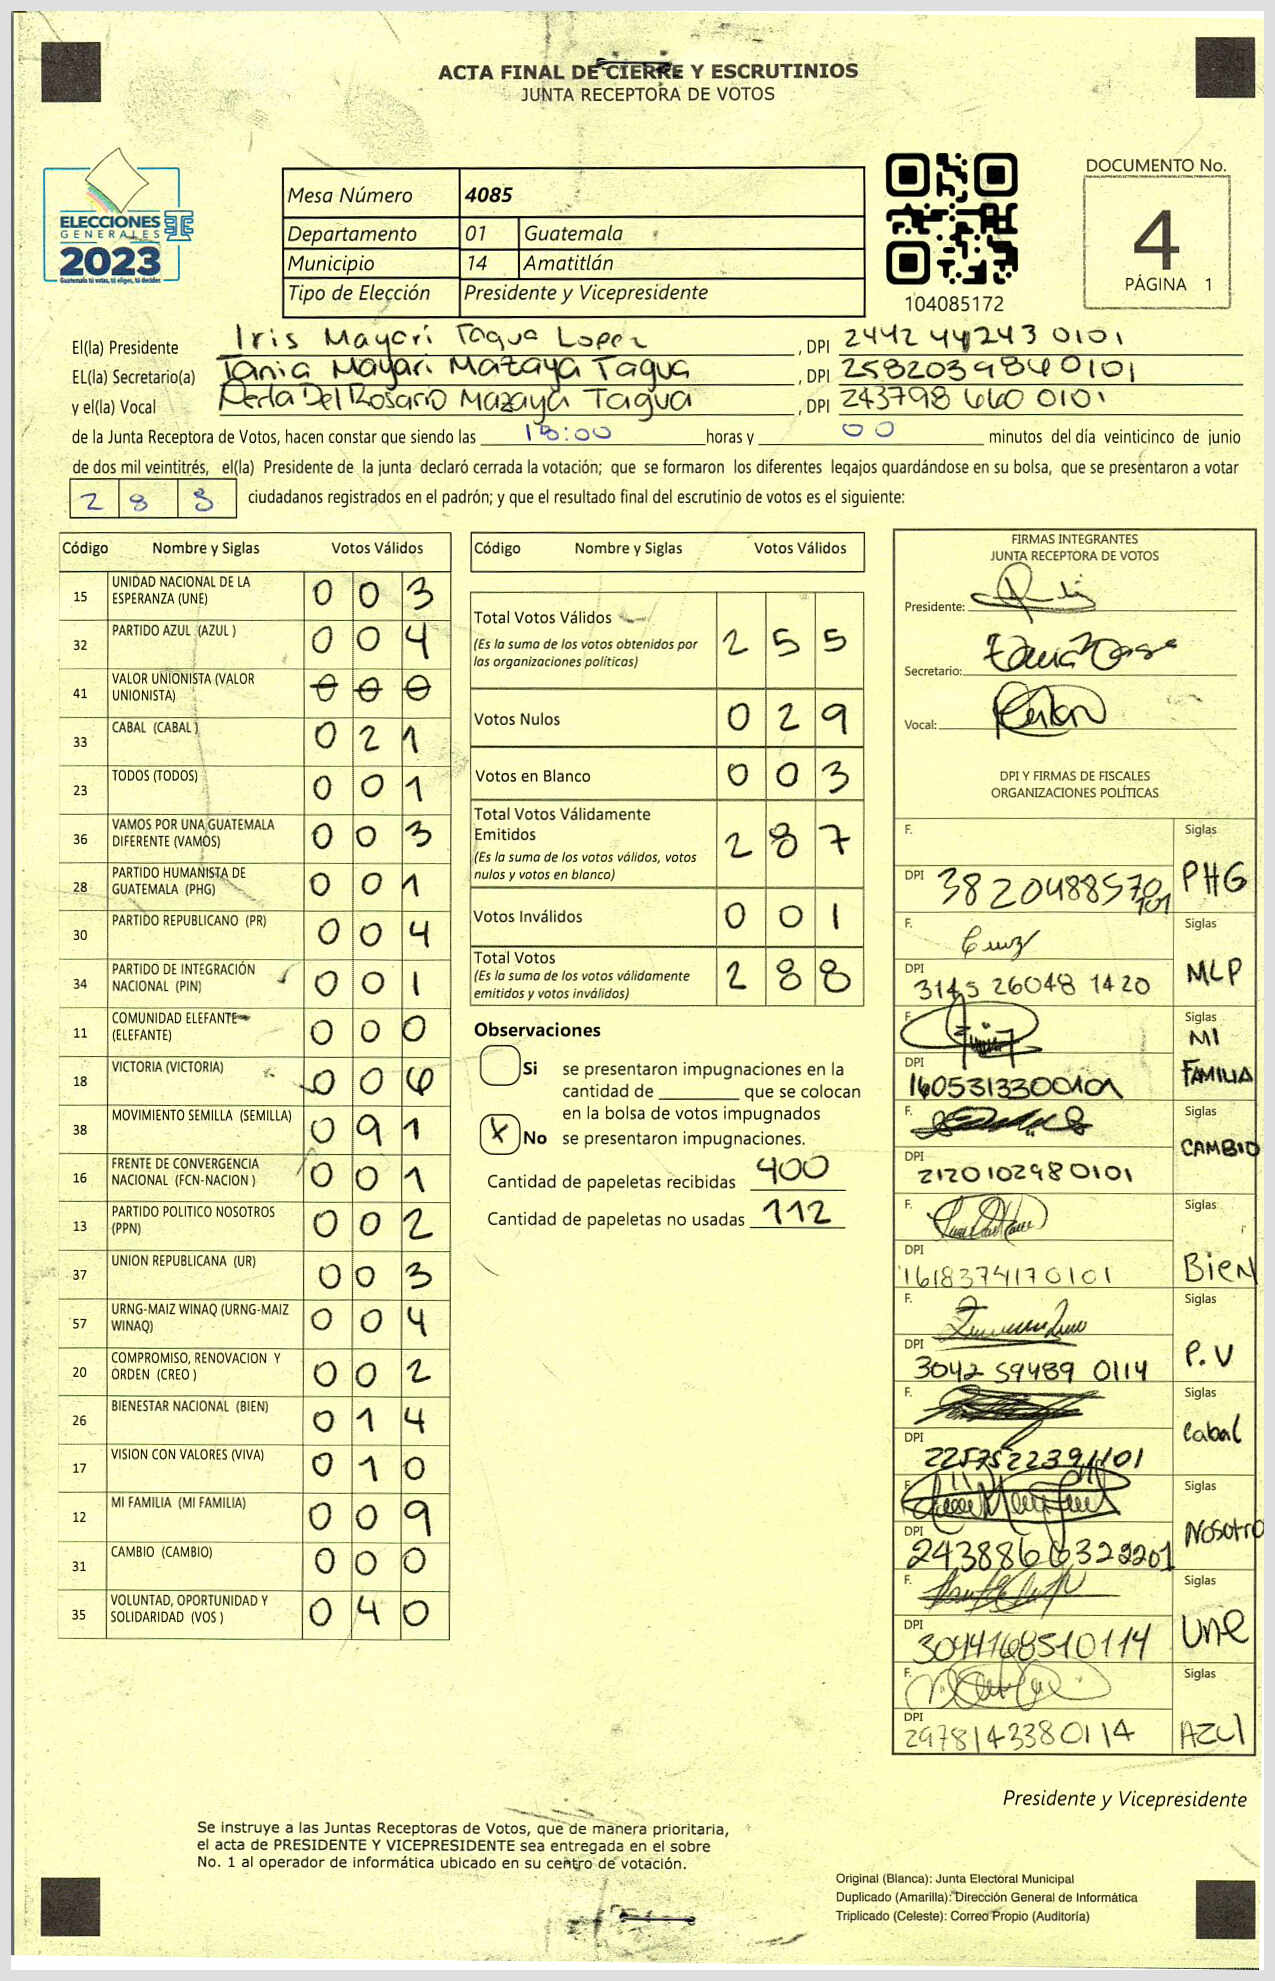 ACTA FINAL DE CIERRE Y ESCRUTINIOS
JUNTA RECEPTORA DE VOTOS
ELECCIONES
GENERALES
2023
Guatemala tú votas, tú eliges, tú decides
Mesa Número 4085
Departamento 01 Guatemala
Municipio 14 Amatitlán
Tipo de Elección Presidente y Vicepresidente
104085172
DOCUMENTO No.
4
PÁGINA 1
El(la) Presidente Iris Mayarí Tagua Lopez, DPI 2442 44243 0101
EL(la) Secretario(a) Tania Mayari Mazaya Tagua, DPI 258203984 0101
y el(la) Vocal Perla Del Rosario Mazaya Tagua, DPI 243798 660 0101
de la Junta Receptora de Votos, hacen constar que siendo las 18:00 horas y 00 minutos del día veinticinco de junio
de dos mil veintitrés, el(la) Presidente de la junta declaró cerrada la votación; que se formaron los diferentes legajos guardándose en su bolsa, que se presentaron a votar
2 8 8 ciudadanos registrados en el padrón; y que el resultado final del escrutinio de votos es el siguiente:
Código Nombre y Siglas Votos Válidos
15 UNIDAD NACIONAL DE LA ESPERANZA (UNE) 0 0 3
32 PARTIDO AZUL (AZUL ) 0 0 4
41 VALOR UNIONISTA (VALOR UNIONISTA) 0 0 0
33 CABAL (CABAL ) 0 2 1
23 TODOS (TODOS) 0 0 1
36 VAMOS POR UNA GUATEMALA DIFERENTE (VAMOS) 0 0 3
28 PARTIDO HUMANISTA DE GUATEMALA (PHG) 0 0 1
30 PARTIDO REPUBLICANO (PR) 0 0 4
34 PARTIDO DE INTEGRACIÓN NACIONAL (PIN) 0 0 1
11 COMUNIDAD ELEFANTE (ELEFANTE) 0 0 0
18 VICTORIA (VICTORIA) 0 0
38 MOVIMIENTO SEMILLA (SEMILLA) 0 9 1
16 FRENTE DE CONVERGENCIA NACIONAL (FCN-NACION ) 0 0 1
13 PARTIDO POLITICO NOSOTROS (PPN) 0 0 2
37 UNION REPUBLICANA (UR) 0 0 3
57 URNG-MAIZ WINAQ (URNG-MAIZ WINAQ) 0 0 4
20 COMPROMISO, RENOVACION Y ORDEN (CREO ) 0 0 2
26 BIENESTAR NACIONAL (BIEN) 0 1 4
17 VISION CON VALORES (VIVA) 0 1 0
12 MI FAMILIA (MI FAMILIA) 0 0 9
31 CAMBIO (CAMBIO) 0 0 0
35 VOLUNTAD, OPORTUNIDAD Y SOLIDARIDAD (VOS ) 0 4 0
Código Nombre y Siglas Votos Válidos
Total Votos Válidos 2 5 5
(Es la suma de los votos obtenidos por las organizaciones políticas)
Votos Nulos 0 2 9
Votos en Blanco 0 0 3
Total Votos Válidamente Emitidos 2 8 7
(Es la suma de los votos válidos, votos nulos y votos en blanco)
Votos Inválidos 0 0 1
Total Votos 2 8 8
(Es la suma de los votos válidamente emitidos y votos inválidos)
Observaciones
Si se presentaron impugnaciones en la
cantidad de ________ que se colocan
en la bolsa de votos impugnados
X No se presentaron impugnaciones.
Cantidad de papeletas recibidas 400
Cantidad de papeletas no usadas 112
FIRMAS INTEGRANTES
JUNTA RECEPTORA DE VOTOS
Presidente:
Secretario:
Vocal:
DPI Y FIRMAS DE FISCALES
ORGANIZACIONES POLÍTICAS
F. Siglas PHG
DPI 3820488570101
F. Cruz Siglas MLP
DPI 3145 26048 1420
F. Siglas MI FAMILIA
DPI 1605313300101
F. Siglas CAMBIO
DPI 2120102980101
F. Siglas Bien
DPI 1618374170101
F. Siglas P.V
DPI 3042 59489 0114
F. Siglas Cabal
DPI 2257522391101
F. Siglas Nosotro
DPI
F. Siglas Une
DPI 3094168510114
F. Siglas AZUl
DPI 2978143380114
Presidente y Vicepresidente
Se instruye a las Juntas Receptoras de Votos, que de manera prioritaria,
el acta de PRESIDENTE Y VICEPRESIDENTE sea entregada en el sobre
No. 1 al operador de informática ubicado en su centro de votación.
Original (Blanca): Junta Electoral Municipal
Duplicado (Amarilla): Dirección General de Informática
Triplicado (Celeste): Correo Propio (Auditoría)